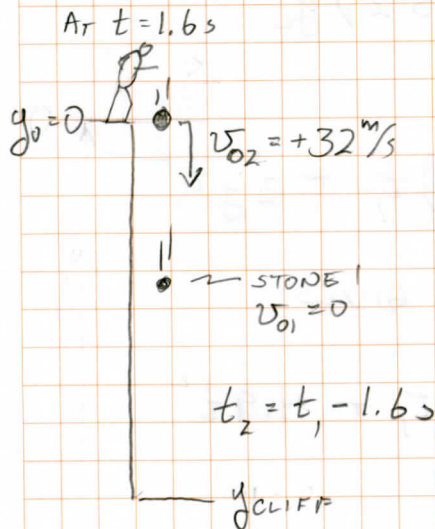 AT t=1.6s
y₀=0
v₀₂=+32 m/s
STONE 1
v₀₁=0
t₂ = t₁ - 1.6s
yCLIFF